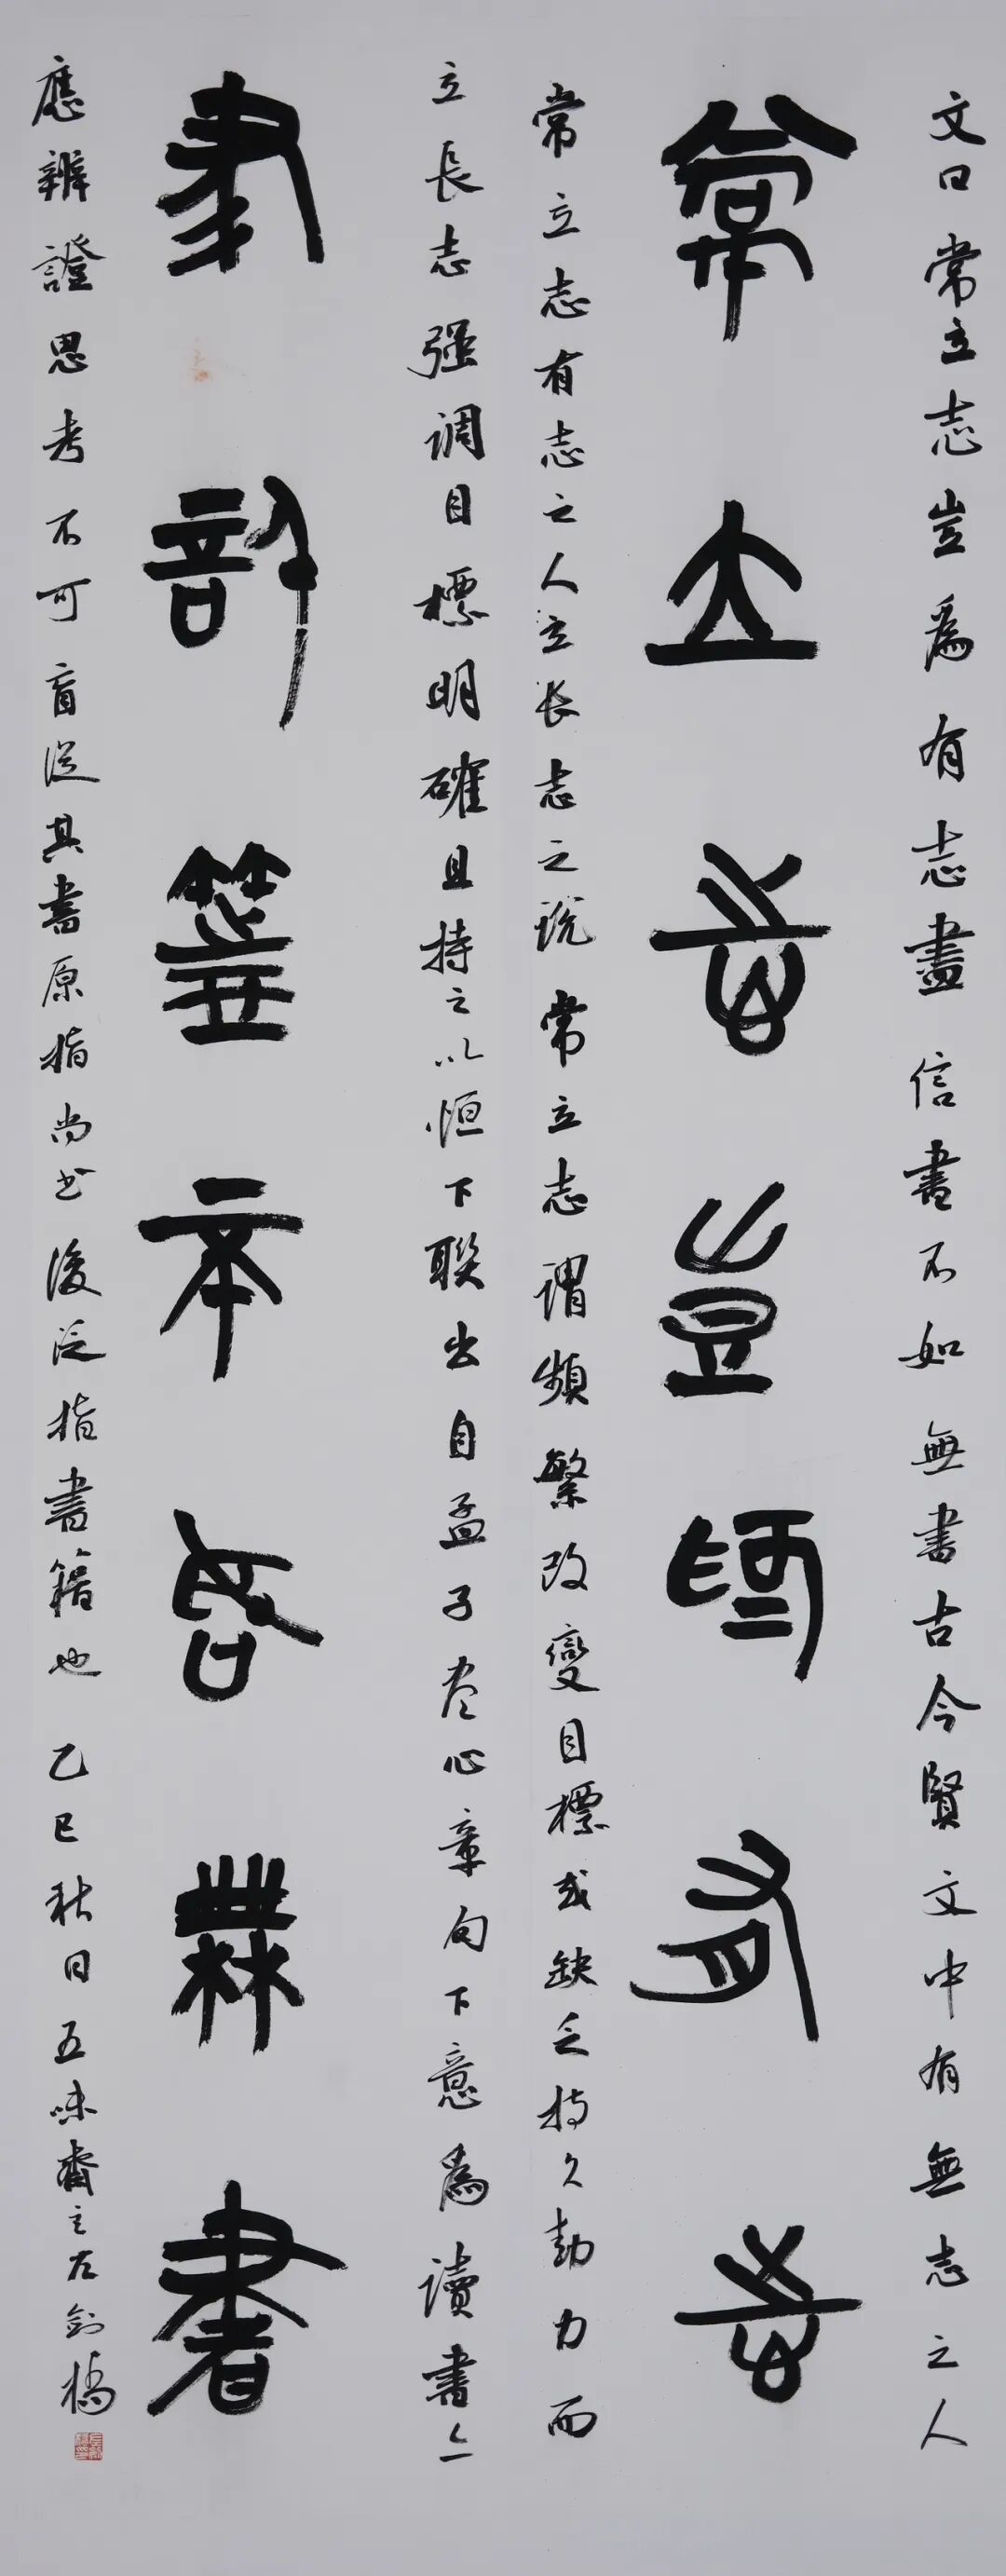 文曰常立志豈爲有志盡信書不如無書古今賢文中有無志之人
常立志豈爲有志
常立志有志之人立长志之说常立志謂頻繁改變目標或缺乏持久動力而
立長志强调目標明確且持之以恒下聯出自孟子尽心章句下意爲讀書亦
盡信書不如無書
應辨證思考不可盲從其書原指尚书後泛指書籍也 乙巳秋日五味齋主左劍橋